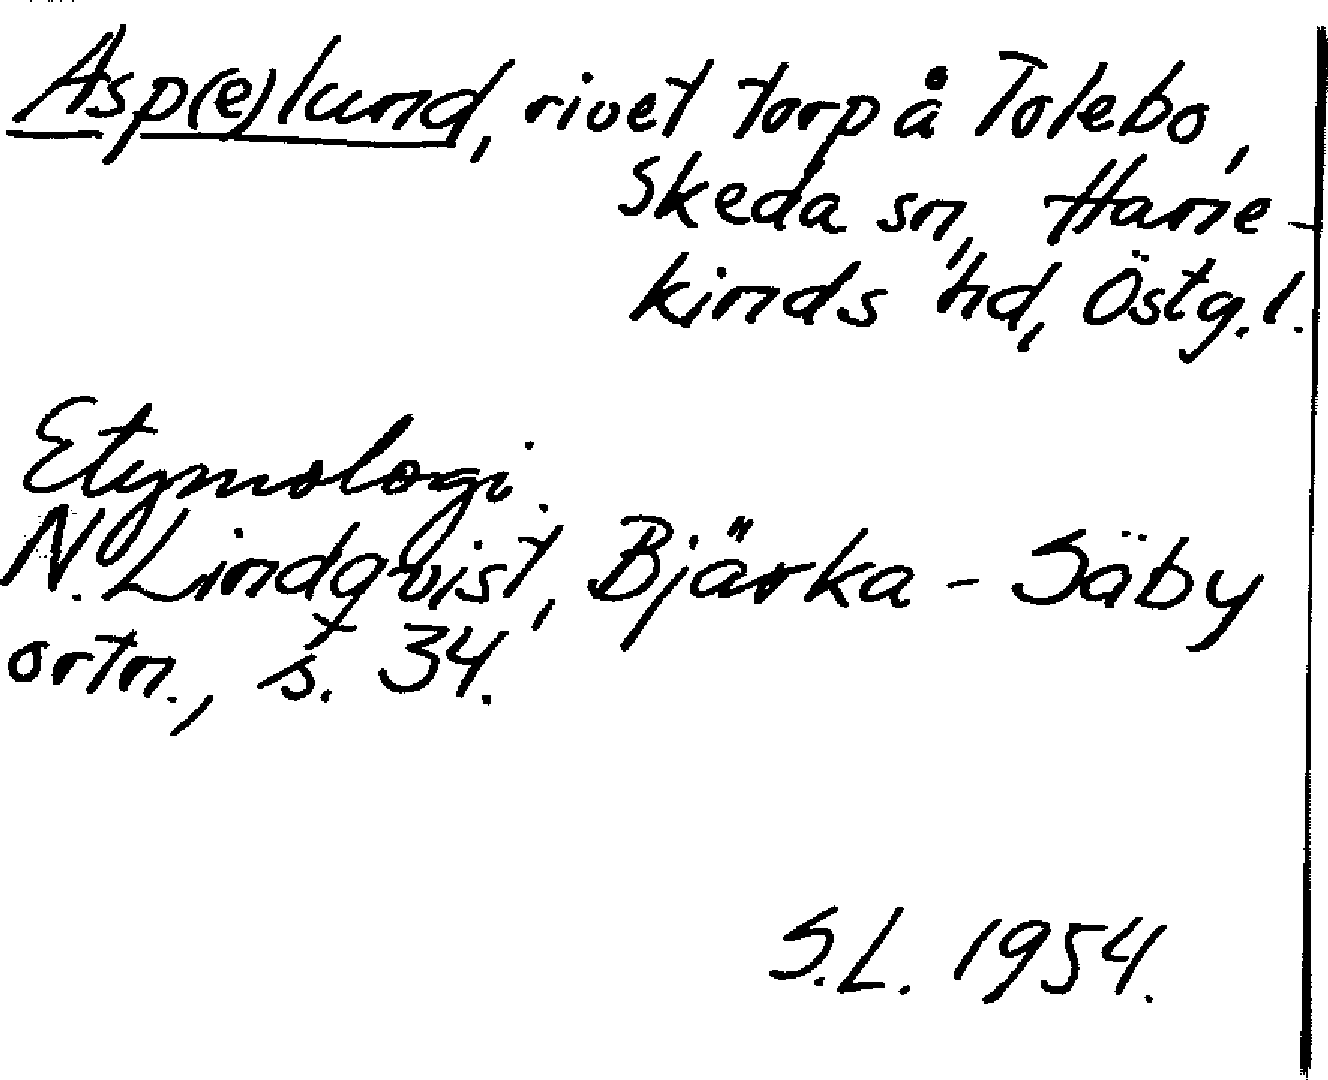 Asp(e)lund, rivet torp å Tolebo,
Skeda sn, Hane-
kinds hd, Östg.l.
Etymologi.
N. Lindqvist, Bjärka-Säby
ortn., s. 34.
S.L. 1954.